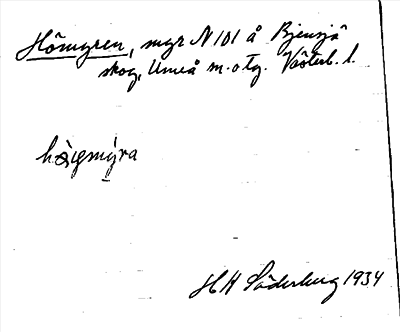 Hömyren, myr N 101 å Bjensjö
skog, Umeå m. o tg. Västerb. l.
hö̀gmýra
HH Söderberg 1934